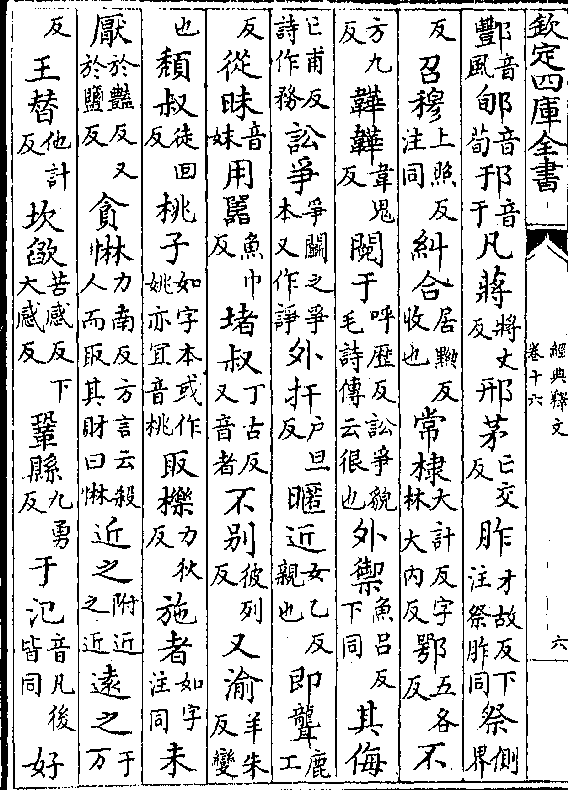 欽定四庫全書
經典釋文
卷十六
六
酆音風郇音荀邘音于凡蔣將丈反邢茅亡交反胙才故反下注祭胙同祭側界
反召穆上照反注同糾合居黝反收也常棣大計反字林大内反鄂五各反不
方九反韡韡韋鬼反鬩于呼歴反訟爭貌毛詩傳云很也外禦魚吕反下同其侮
亡甫反詩作務訟爭爭鬭之爭本又作諍外扞户旦反暱近女乙反親也即聾鹿工
反從昧音妹用嚚魚巾反堵叔丁古反又音者不别彼列反又渝羊朱反變
也頽叔徒回反桃子如字本或作姚亦宜音桃取櫟力狄反施者如字注同未
厭於豔反又於鹽反貪惏力南反方言云殺人而取其財曰惏近之附近之近逺之于万
反王替他計反坎欿苦感反下大感反鞏縣九勇反于氾音凡後皆同好